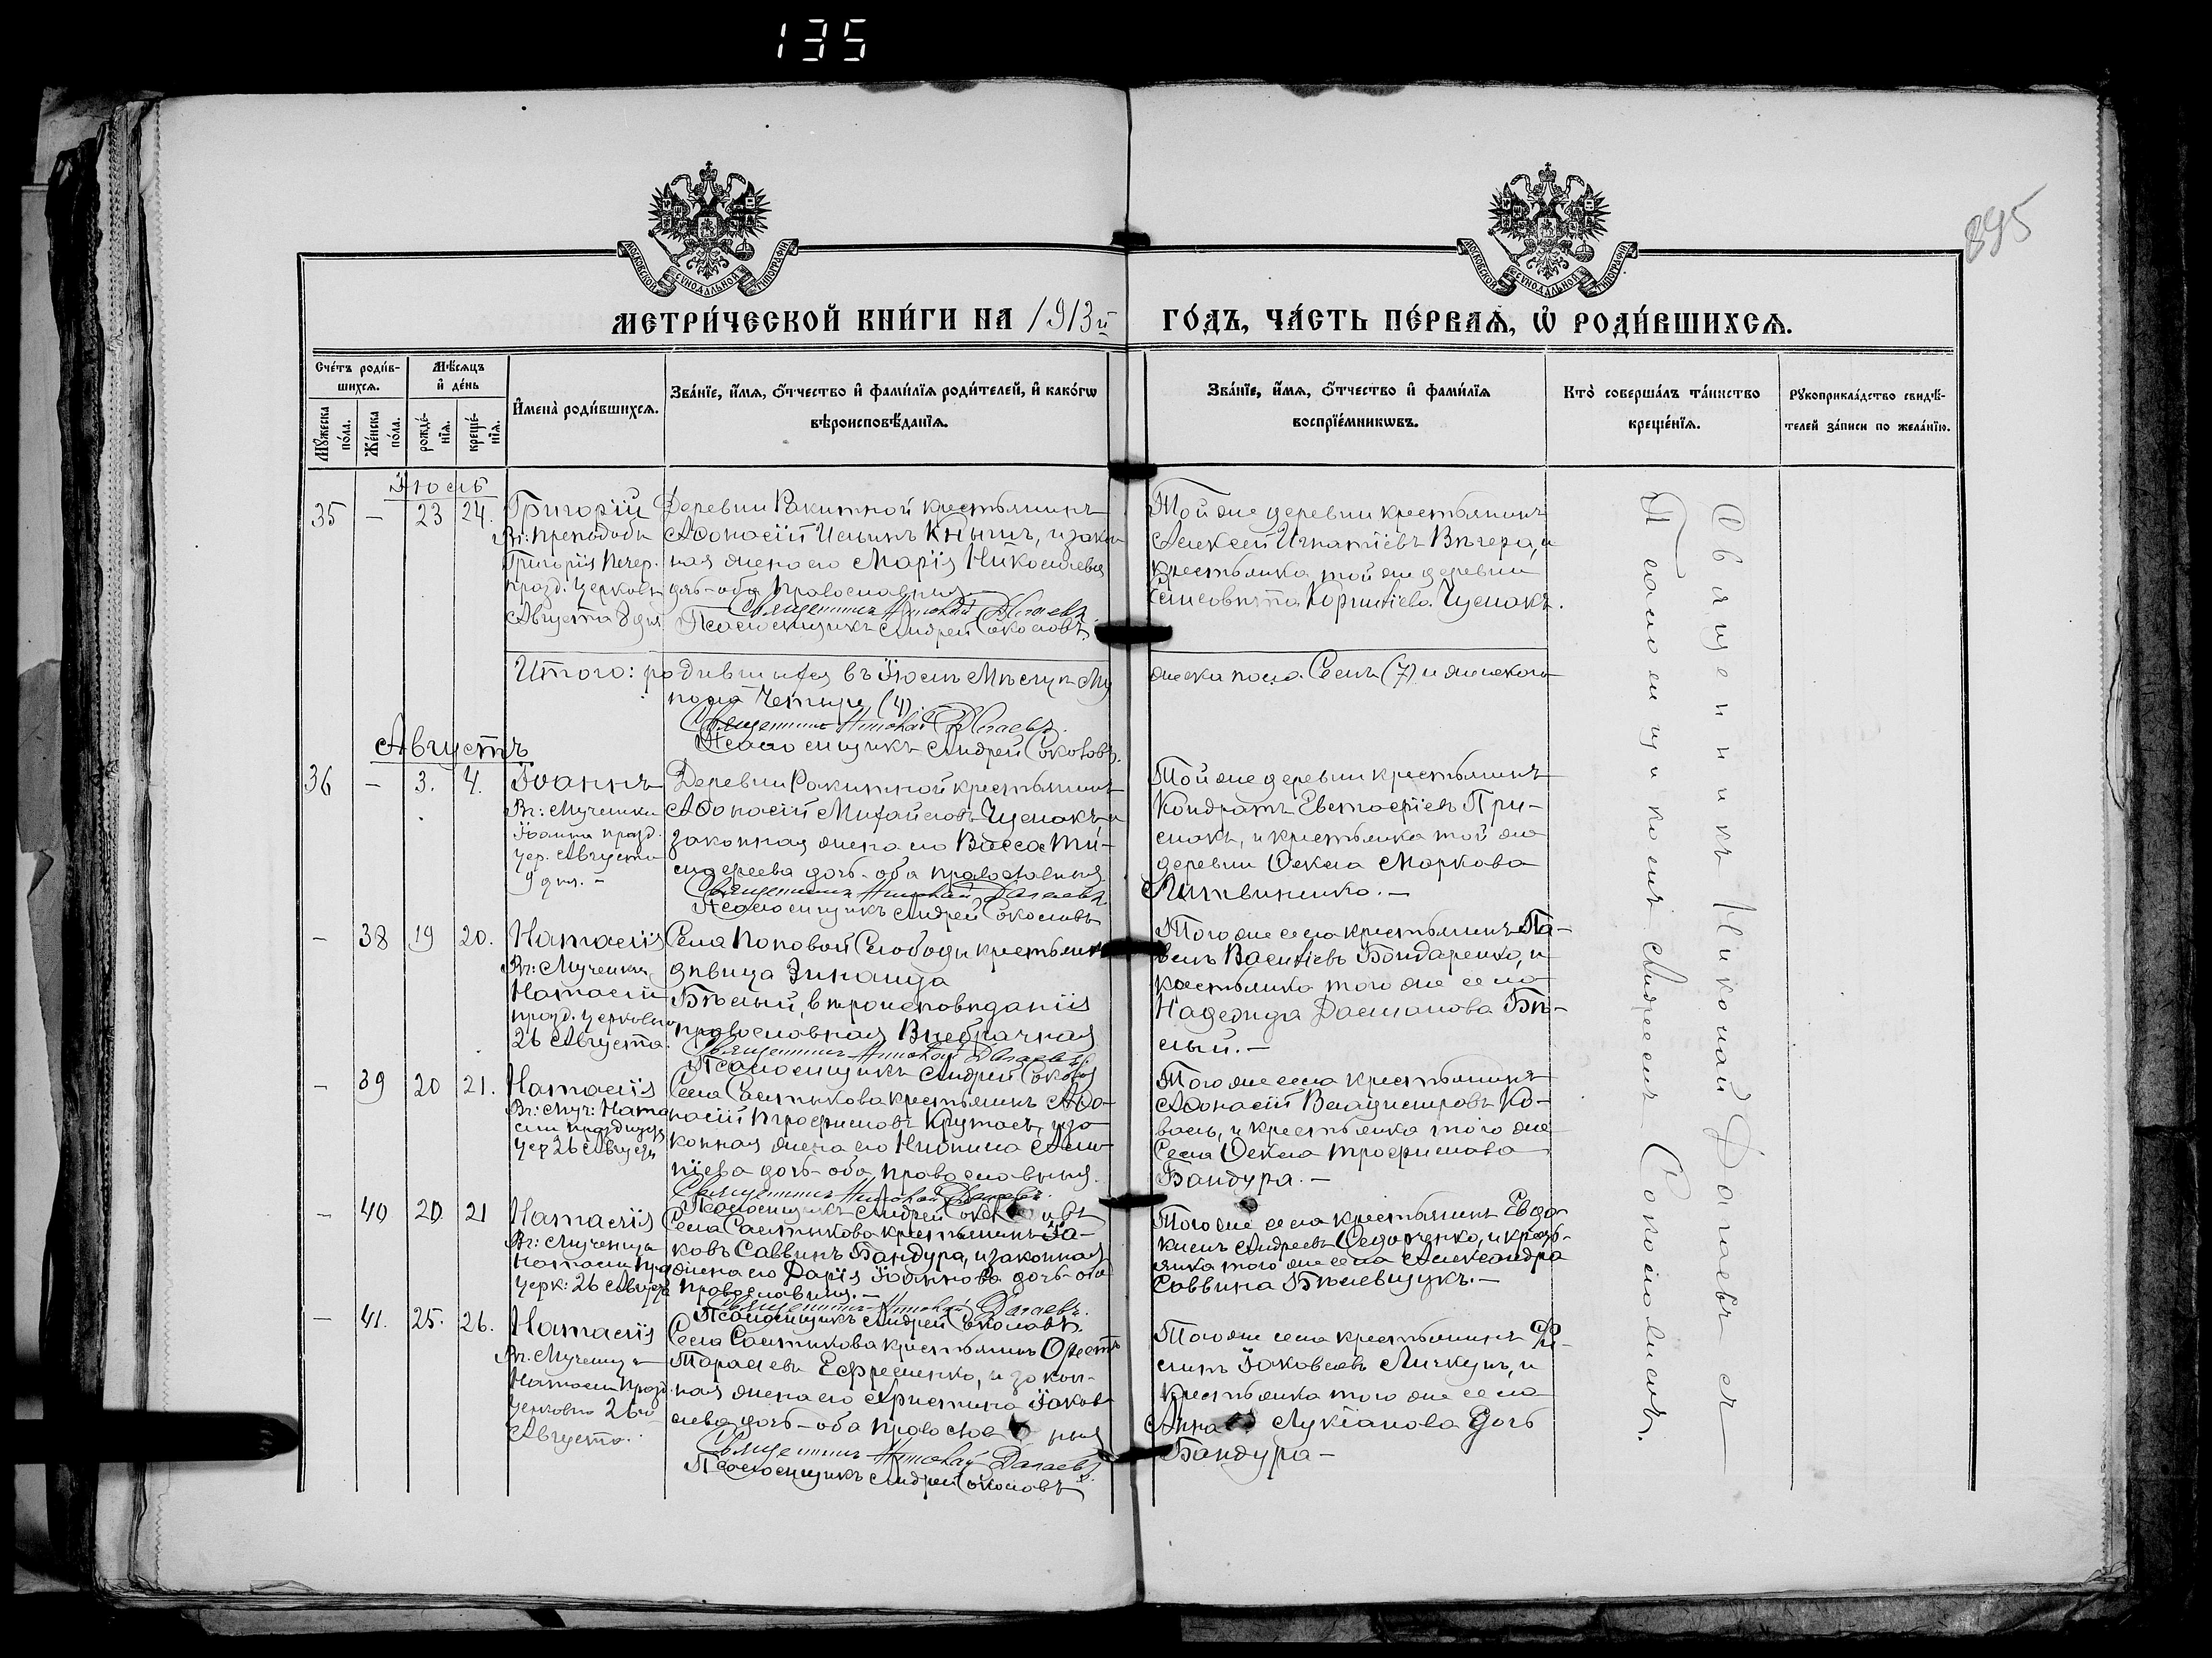 135
895
МОСКОВСКОЙ СѴНОДАЛЬНОЙ ТИПОГРАФІИ
МОСКОВСКОЙ СѴНОДАЛЬНОЙ ТИПОГРАФІИ
МЕТРИ́ЧЕСКОЙ КНИ́ГИ НА 1913й ГО́ДЪ, ЧА́СТЬ ПЕ́РВАѦ, Ѡ҆ РОДИ́ВШИХСѦ.
Сче́тъ роди́вшихсѧ.
Мꙋ́жеска по́ла.
Же́нска по́ла.
Мѣ́сѧцъ и҆ де́нь
рожде́нїѧ.
креще́нїѧ.
И҆мена̀ роди́вшихсѧ.
Зва́нїе, и҆́мѧ, ѻ҆́тчество и҆ фами́лїѧ роди́телей, и҆ како́гѡ
вѣроисповѣ́данїѧ.
Зва́нїе, и҆́мѧ, ѻ҆́тчество и҆ фами́лїѧ
воспрїе́мникѡвъ.
Кто̀ соверша́лъ та́инство
креще́нїѧ.
Рꙋкоприкла́дство свидѣ́-
телей за́писи по жела́нїю.
Іюль
35 — 23 24.
Григорій
Въ: преподобн
Григорія Печер.
празд. церковью
Августа 8 дня
Деревни Ракитной крестьянинъ
Аѳонасій Ильинъ Книшъ, и закон
ная жена его Марія Николаева
дочь - оба православныя
Священникъ Николай Далаевъ
Псаломщикъ Андрей Соколовъ.
Той же деревни крестьянинъ
Алексей Игнатіевъ Вечера, и
крестьянка той же деревни
Чумакъ.
Итого: родившихся въ Іюлѣ Мѣсяцѣ Му
жеска пола Семь (7) и женскаго
пола Четыре (4).
Священникъ Николай Далаевъ.
Псаломщикъ Андрей Соколовъ.
Августъ
36 — 3. 4.
Іоаннъ
Въ: Мученика
Іоанна празд.
цер. Августа
9 дня. —
Деревни Ракитной крестьянинъ
Аѳонасій Михайловъ Чумакъ и
законная жена его Васса Ти-
моѳеева дочь - оба православныя
Священникъ Николай Далаевъ.
Псаломщикъ Андрей Соколовъ
Той же деревни крестьянинъ
Кондратъ Евстафіевъ При-
макъ, и крестьянка той же
деревни Ѳекла Маркова
Литвиненко. —
— 38 19 20.
Наталія
Въ: Мученицы
Наталіи
празд. церковью
26 Августа.
Села Поповой Слободы крестьянк
девица Зинаида
Бѣлый, вѣроисповѣданія
православная Внебрачная
Священникъ Николай Далаевъ.
Псаломщикъ Андрей Соколовъ
Того же села крестьянинъ Па-
велъ Василіевъ Бондаренко, и
крестьянка того же села
Надежда Бѣ-
лый. —
— 39 20 21.
Наталія
Въ: муч: Ната
ліи празднуем
цер 26 Августа
Села Салтыкова крестьянинъ Аѳо-
насій Трофимовъ Крутась, и за
конная жена его
дочь - оба православныя.
Священникъ Николай Далаевъ.
Псаломщикъ Андрей Соколовъ
Того же села крестьянинъ
Аѳонасій Владимировъ Ко-
валь, и крестьянка того же
села Ѳекла Трофимова
Бандура. —
— 40 20 21
Наталія
Въ: Мученицы
Наталіи праз
церк: 26 Августа
Села Салтыкова крестьянинъ Іа-
ковъ Саввинъ Бандура, и законная
жена его Дарія Іоаннова дочь - оба
православныя. —
Священникъ Николай Далаевъ.
Псаломщикъ Андрей Соколовъ.
Того же села крестьянинъ Евдо
кимъ Андреевъ Ѳедорченко, и кресть-
янка того же села Александра
Саввина Білевщукъ. —
— 41. 25. 26.
Наталія
Въ. Мученицы
Наталіи празд.
церковью 26го
Августа.
Села Салтыкова крестьянинъ Орестъ
Тарасіевъ Ефременко, и закон-
ная жена его Христина Іаков
лева дочь - оба православныя
Священникъ Николай Далаевъ
Псаломщикъ Андрей Соколовъ
Того же села крестьянинъ Фи-
липъ Іаковлевъ Личкунъ, и
крестьянка того же села
Анна Лукіанова дочь
Бандура —
Священникъ Николай Далаевъ съ
Псаломщикомъ Андреемъ Соколовымъ.